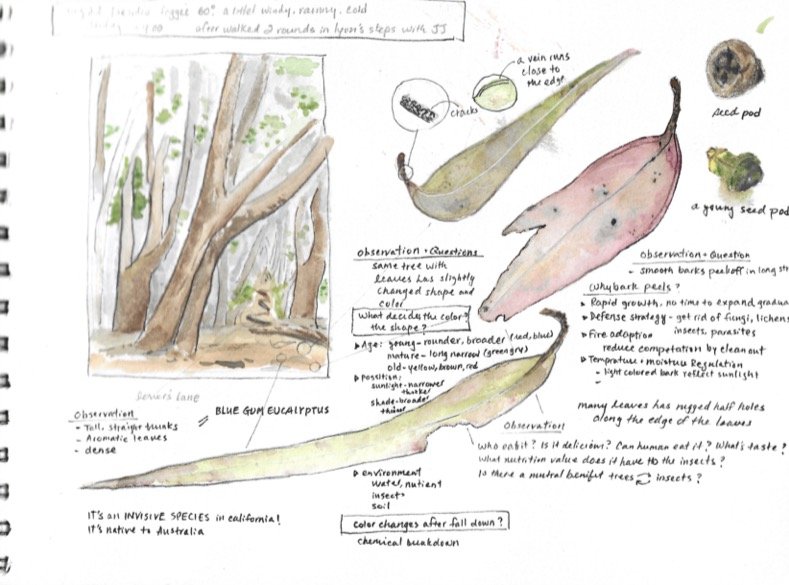 60° a little windy, rainny, cold
after walked 2 rounds in lyon's steps with JJ
a vein runs
close to
the edge
cracks
seed pod
a young seed pod
Observation + Questions
same tree with
leaves has slightly
changed shape and
color
What decides the color?
the shape?
Age: young - rounder, broader (red, blue)
mature - long narrow (greengry)
old - yellow, brown, red
Possition:
sunlight - narrower
thicker
shade - broader
thinner
environment
water, nutient
insects
soil
Color changes after fall down?
chemical breakdown
Observation + Question
- smooth barks peel off in long
Why bark peels?
Rapid growth, no time to expand
Defense strategy - get rid of fungi, lichens
insects, parasites
Fire adoption
reduce competation by clean out
Temprature + moisture Regulation
- light colored bark reflect sunlight
-
many leaves has rugged half holes
along the edge of the leaves
Observation
who eat it? Is it delicious? Can human eat it? What's taste?
What nutrition value does it have to the insects?
Is there a mutral benifut trees insects?
lover's lane
Observation
- Tall, straight trunks
- Aromatic leaves
- dense
BLUE GUM EUCALYPTUS
IT's an INVISIVE SPECIES in california!
It's native to Australia